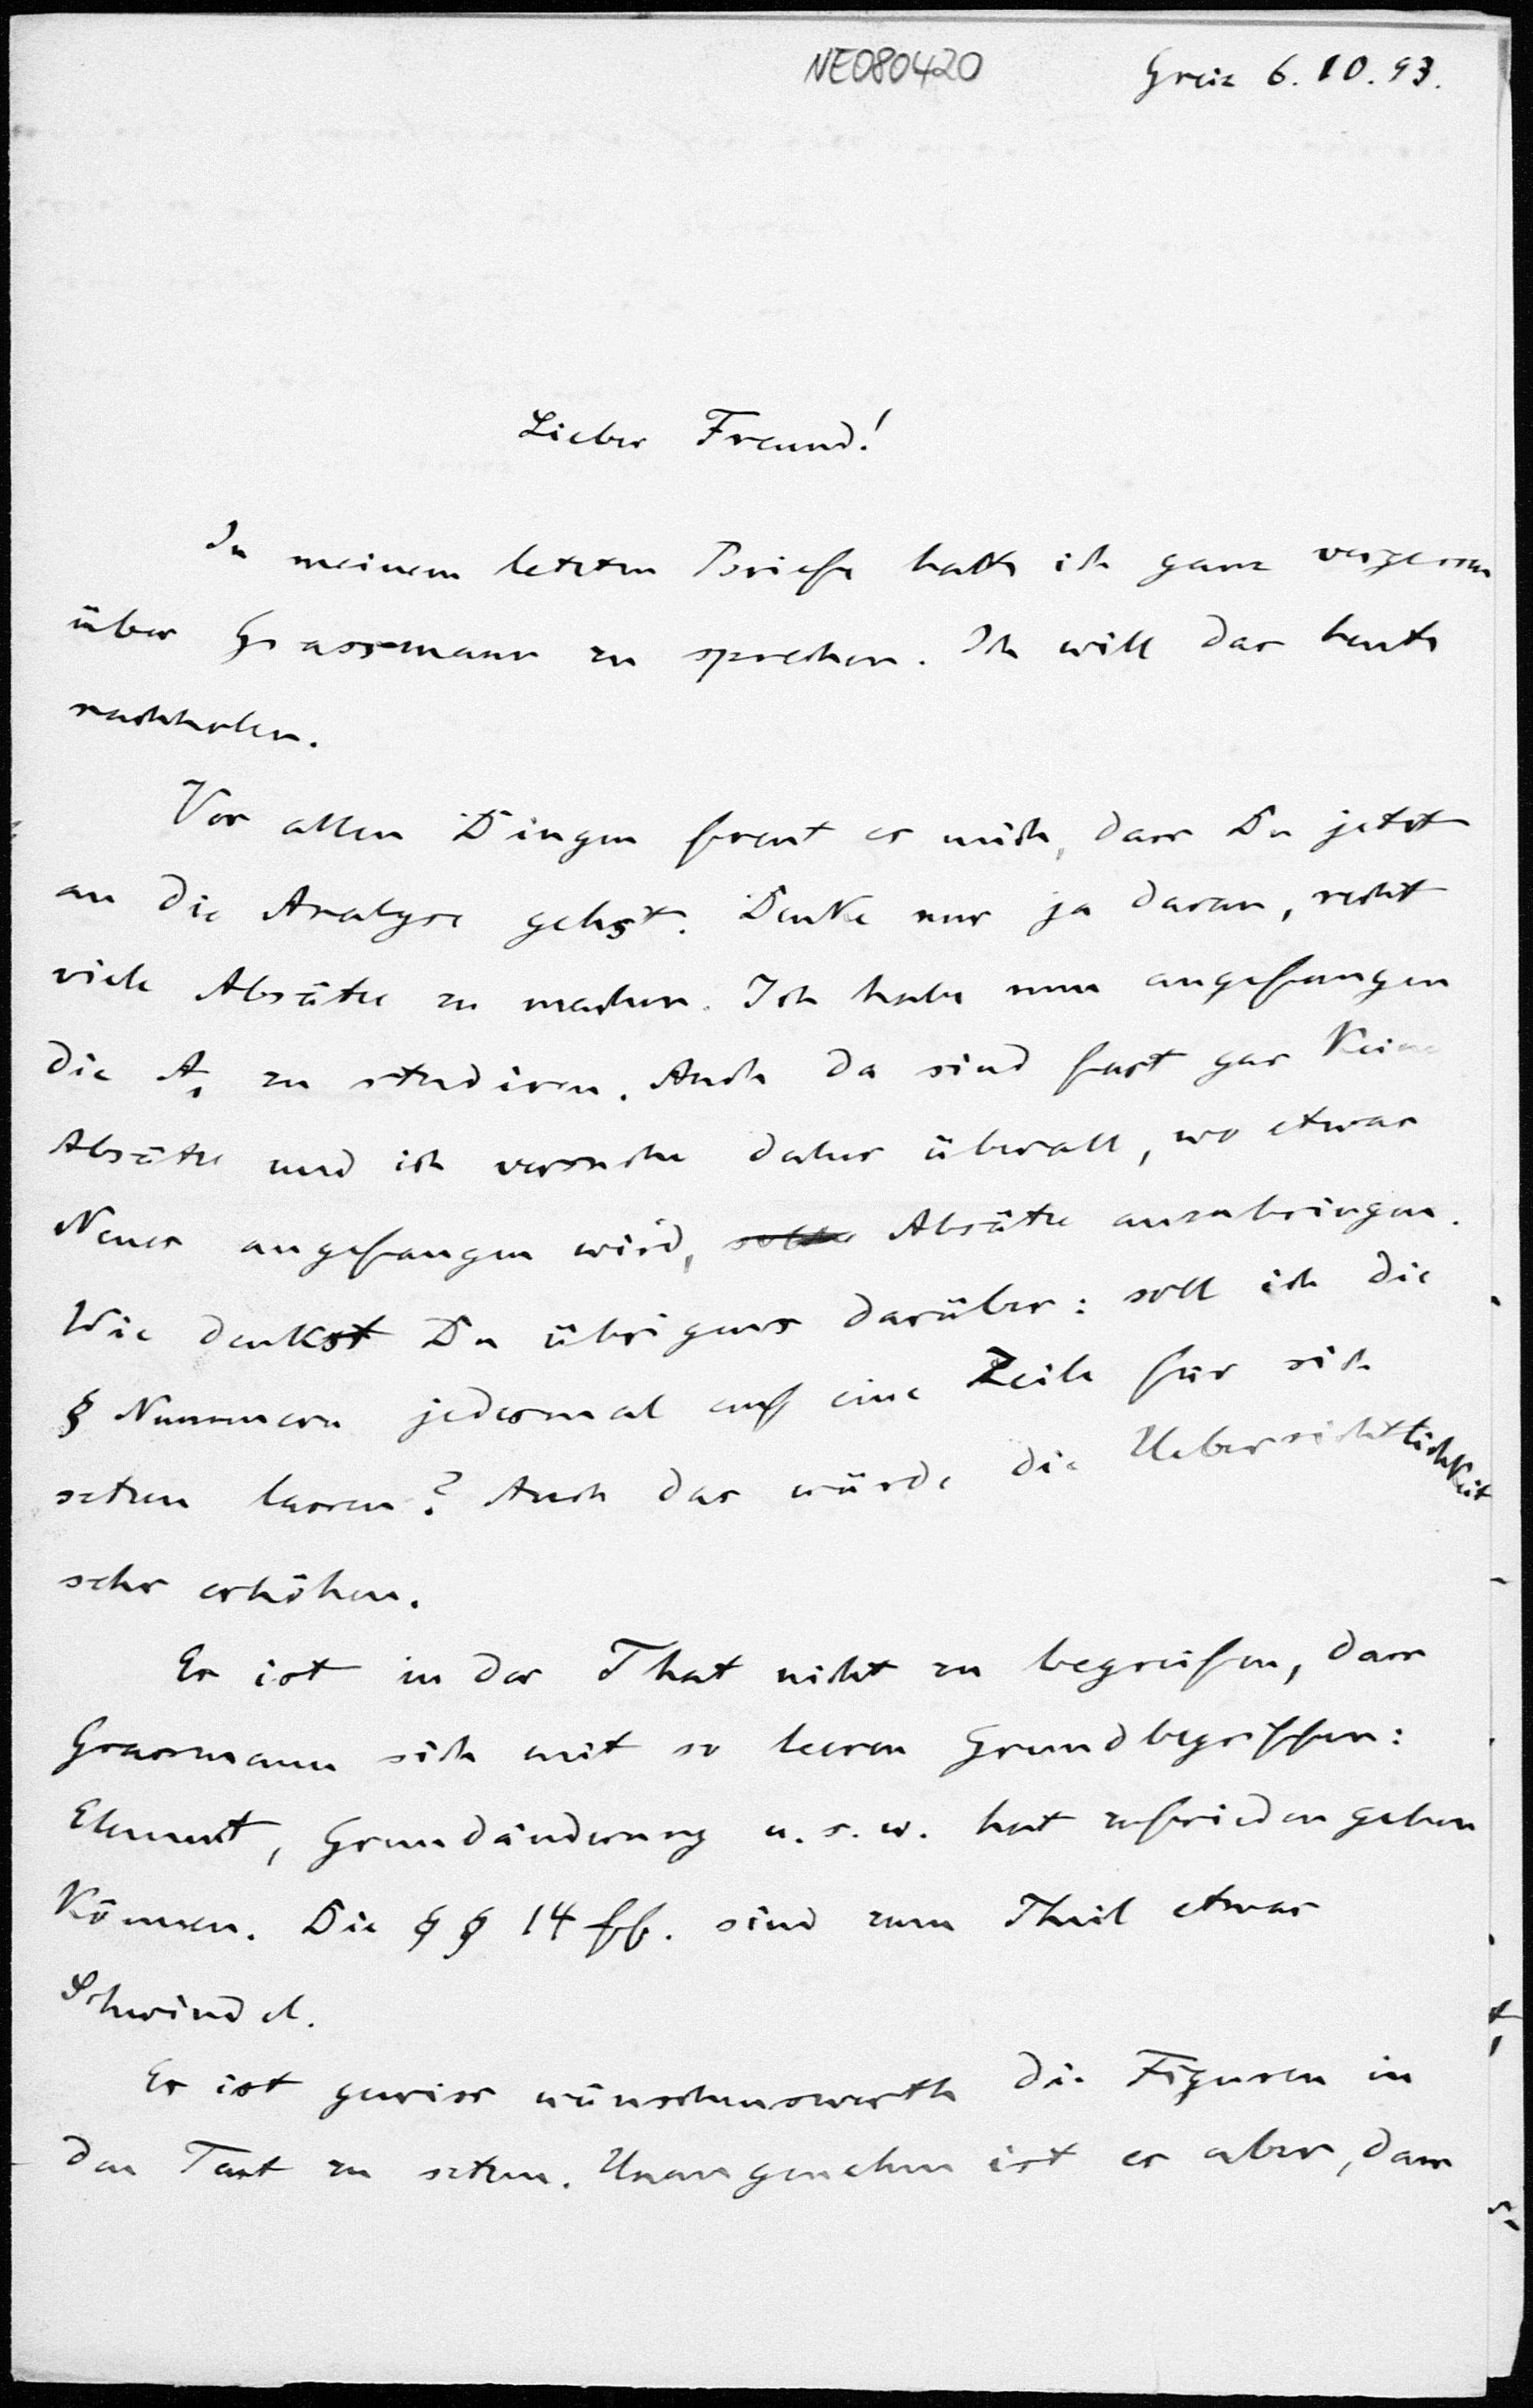 NE080420
Greiz 6.10.93.
Lieber Freund!
In meinem letzten Briefe hatte ich ganz vergessen
über Grassmann zu sprechen. Ich will das heute
nachholen.
Vor allen Dingen freut es mich, dass Du jetzt
an die Analyse gehst. Denke nur ja daran, recht
viele Absätze zu machen. Ich habe nun angefangen
die A₁ zu studiren. Auch da sind fast gar keine
Absätze und ich versuche daher überall, wo etwas
Neues angefangen wird, solche Absätze anzubringen.
Wie denkst Du übrigens darüber: soll ich die
§ Nummern jedesmal auf eine Zeile für sich
setzen lassen? Auch das würde die Uebersichtlichkeit
sehr erhöhen.
Es ist in der That nicht zu begreifen, dass
Grassmann sich mit so leeren Grundbegriffen:
Element, Grundänderung u.s.w. hat zufrieden geben
können. Die §§ 14 ff. sind zum Theil etwas
Schwindel.
Es ist gewiss wünschenswerth die Figuren in
den Text zu setzen. Unangenehm ist es aber, dass